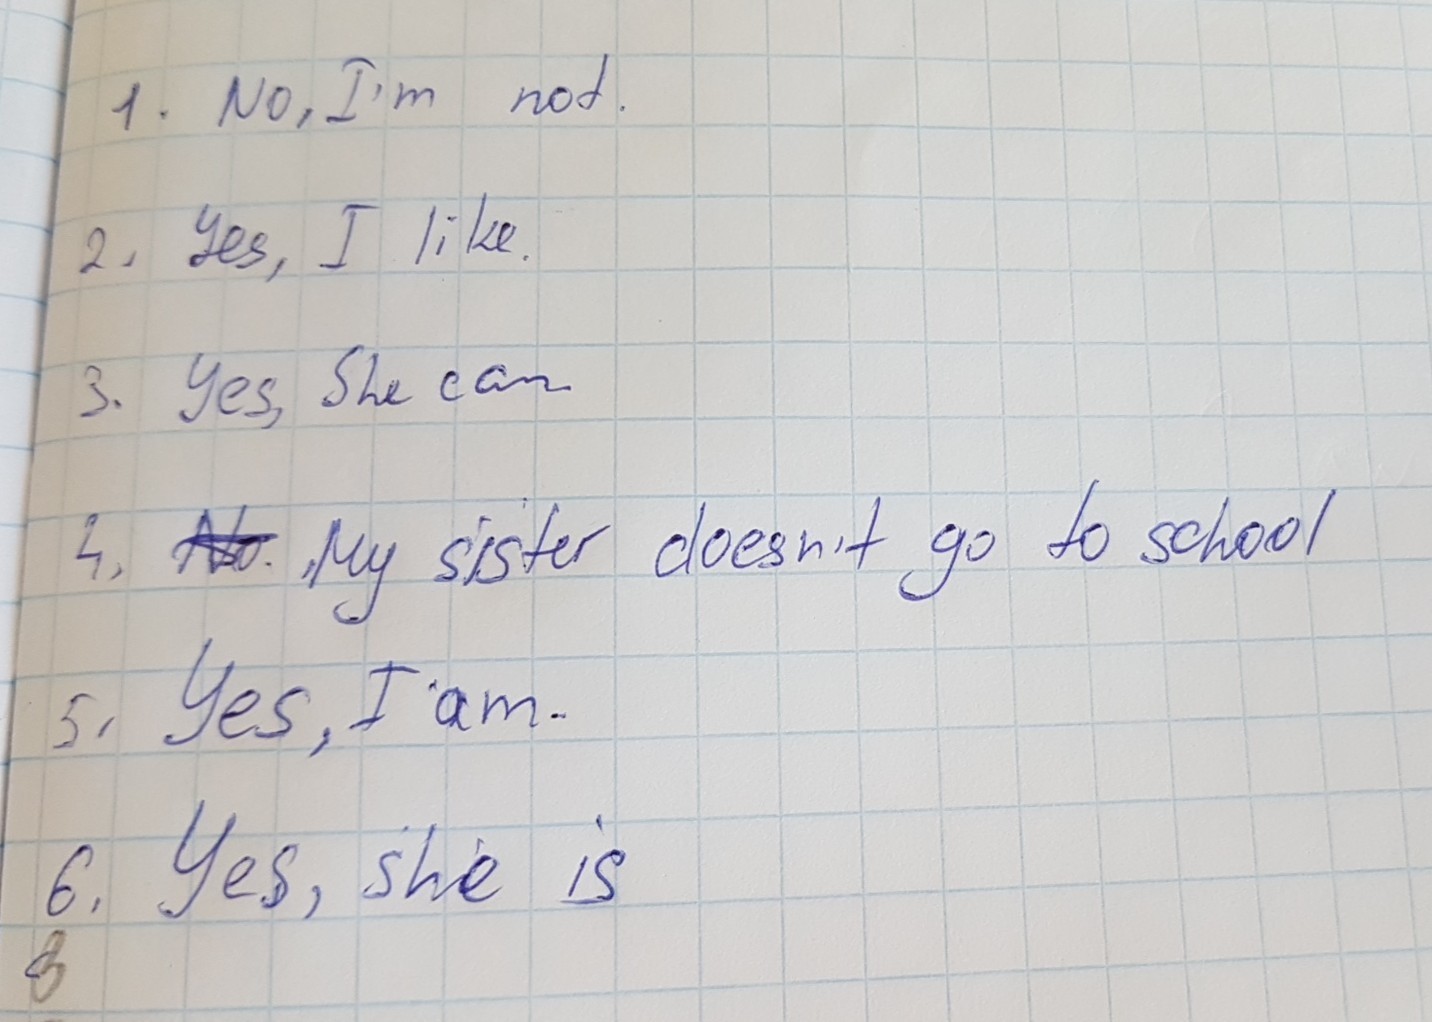 1. No, I'm not.
2. Yes, I like.
3. Yes, She can
4. No. My sister doesn't go to school
5. Yes, I am.
6. Yes, she is
8